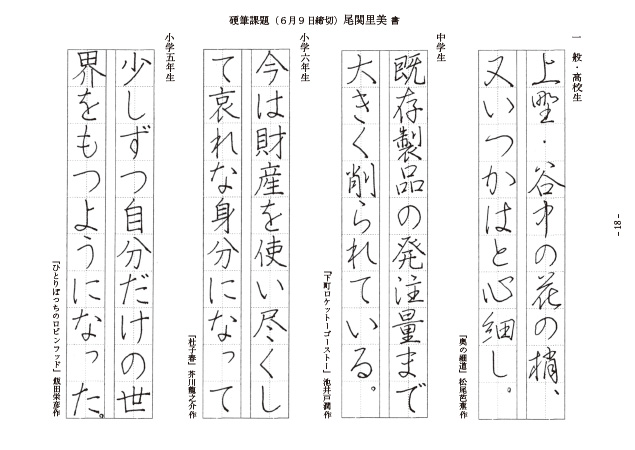 硬筆課題（６月９日締切）尾関里美 書
一般・高校生
上野・谷中の花の梢、
又いつかはと心細し。
『奥の細道』松尾芭蕉作
中学生
既存製品の発注量まで
大きく削られている。
『下町ロケットーゴーストー』池井戸潤作
小学六年生
今は財産を使い尽くし
て哀れな身分になって
『杜子春』芥川龍之介作
小学五年生
少しずつ自分だけの世
界をもつようになった。
『ひとりぼっちのロビンフッド』飯田栄彦作
－18－